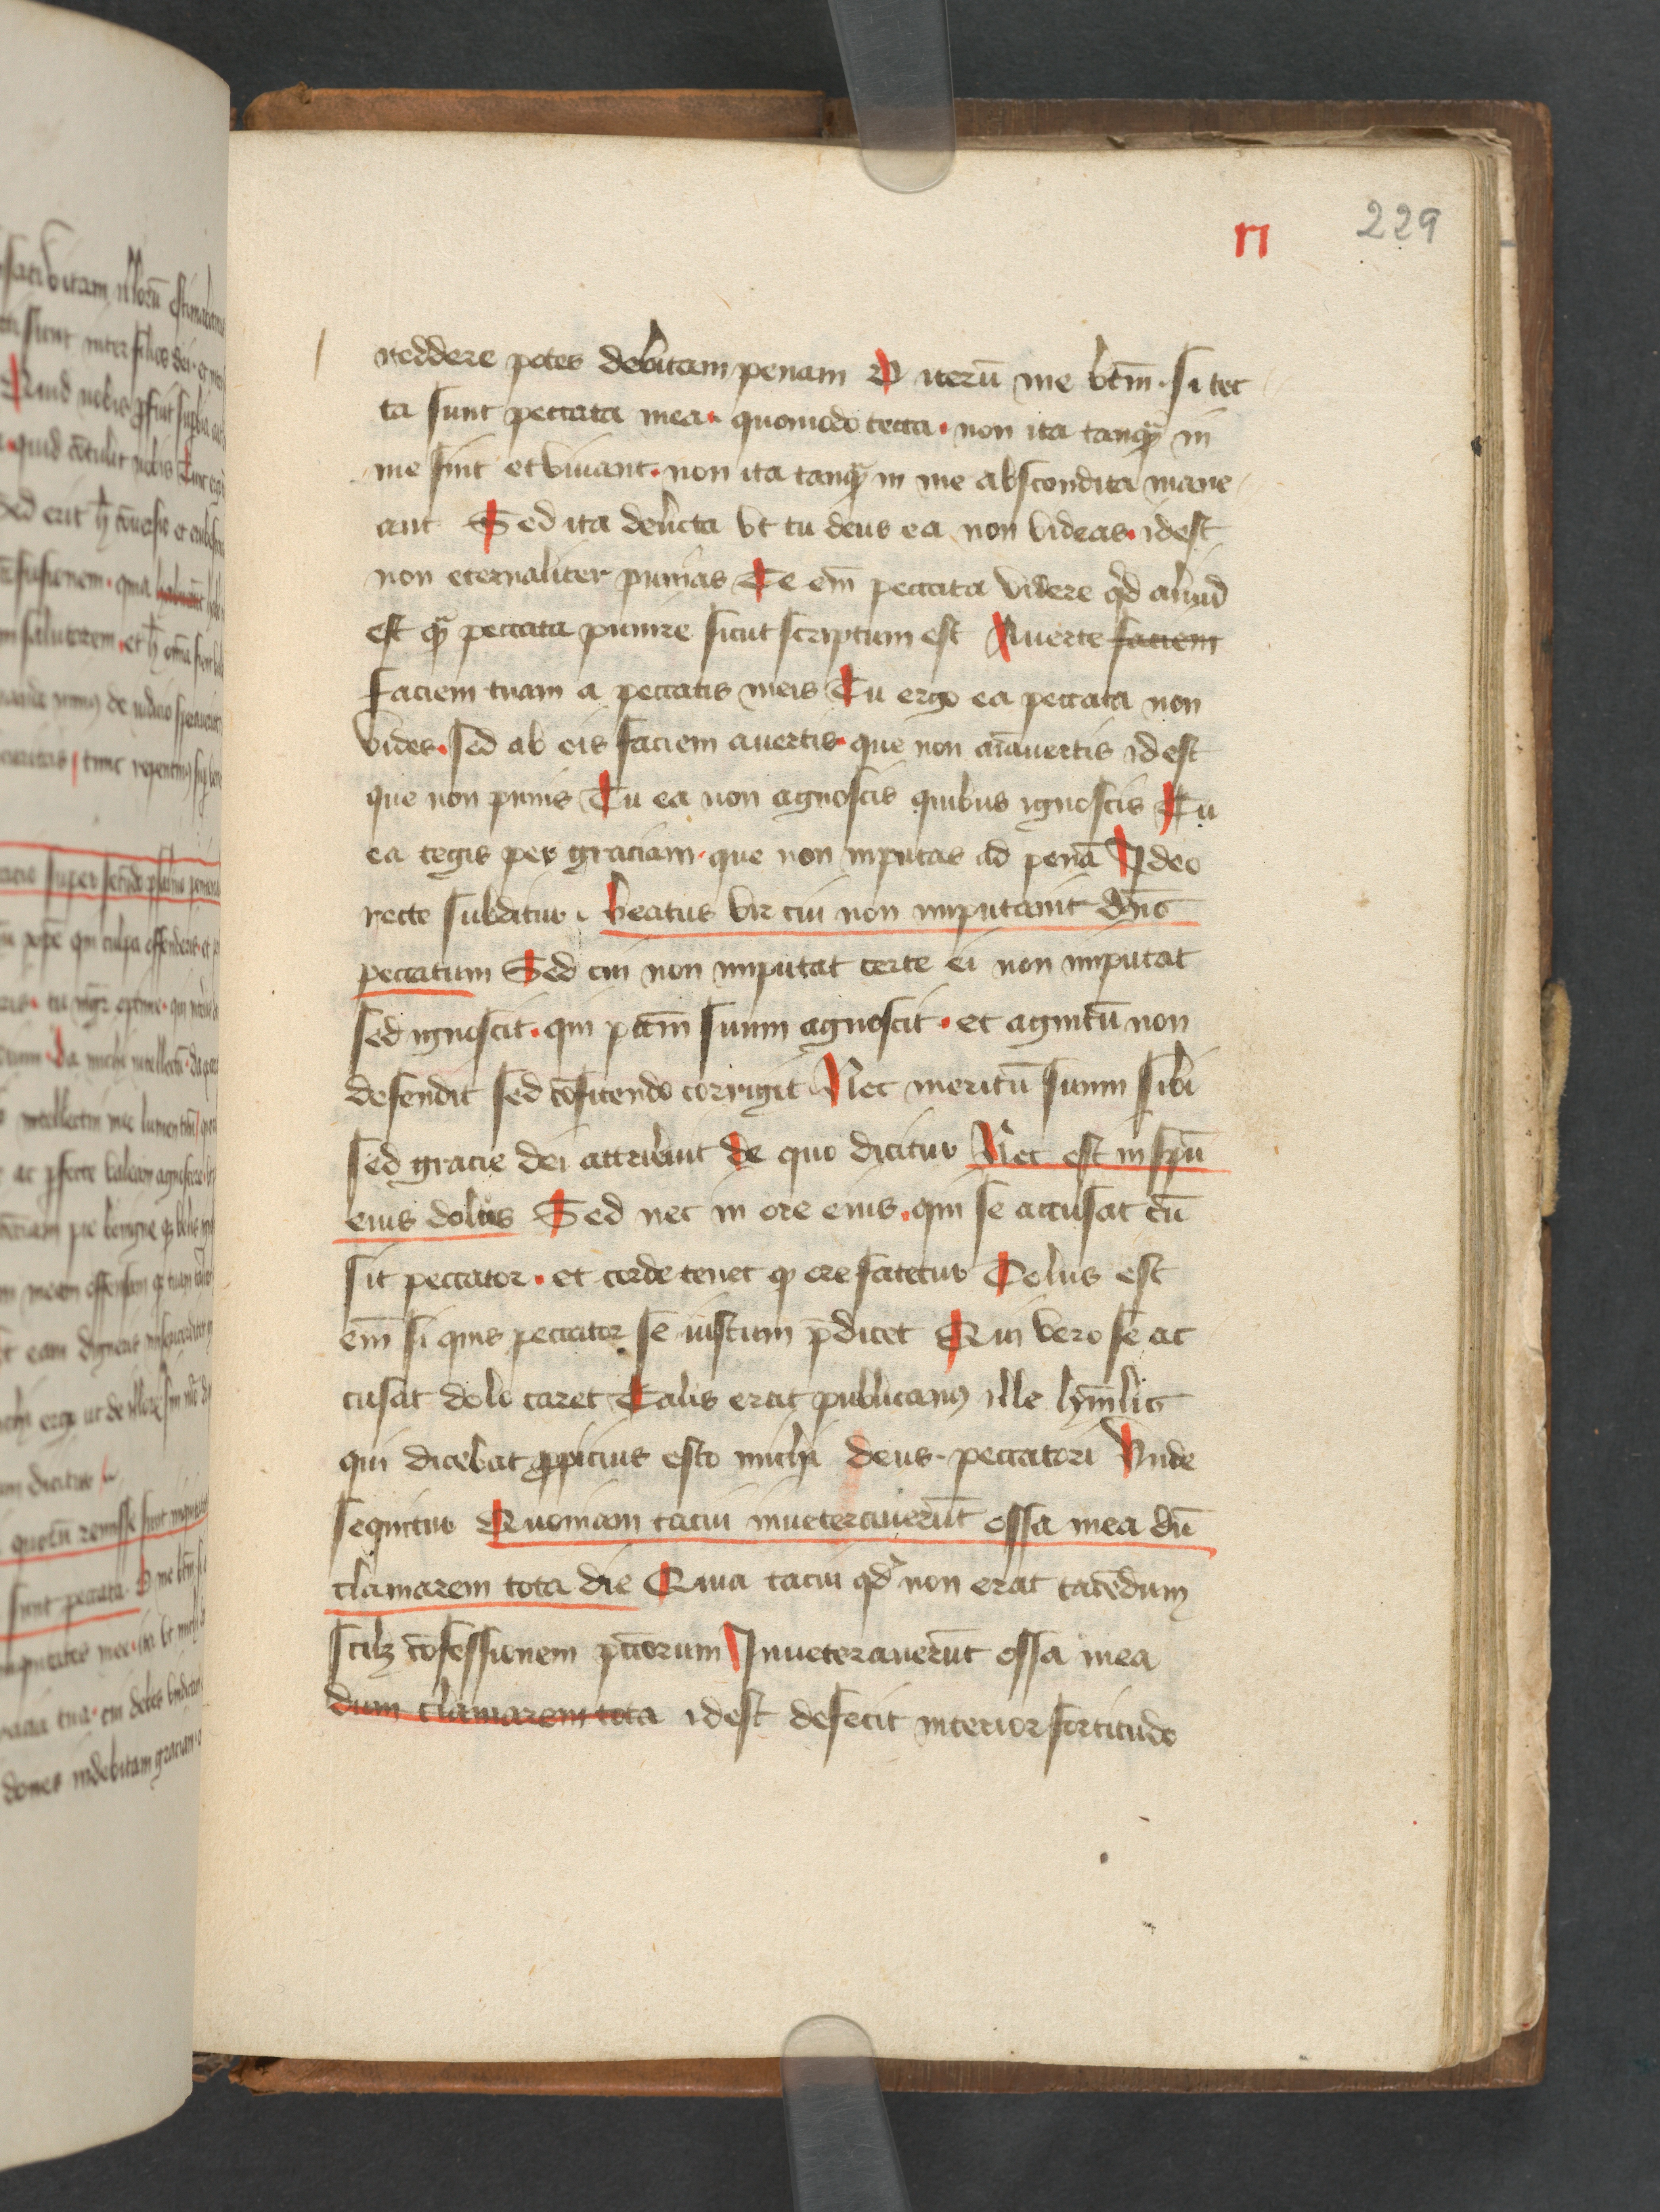 n 229
reddere potes debitam penam O iterū me btm̄ · si tec
ta sunt peccata mea · quomodo tecta · non ita tanqꝫ in
me sint et viuant · non ita tanqꝫ in me abscondita mane
ant Sed ita delicta vt tu deus ea non videas · id est
non eternaliter punias Te em̄ peccata videre qd aliud
est qꝫ peccata punire sicut scriptum est Auerte faciem
faciem tuam a peccatis meis Tu ergo ea peccata non
vides · sed ab eis faciem auertis · que non aīauertis id est
que non punis Tu ea non agnoscis quibus ignoscis Tu
ea tegis per graciam · que non inputas ad penā Ideo
recte subditur · beatus vir cui non imputauit dn̄s
peccatum Sed cui non imputat certe ei non imputat
sed ignoscit · qui pctm̄ suum agnoscit · et agnitū non
defendit sed cōfitendo corrigit Nec meritū suum sibi
sed gracie dei attribuit de quo dicitur Nec est in spū
eius dolus Sed nec in ore eius · qui se accusat cū
sit peccator · et corde tenet qꝫ ore fatetur Dolus est
em̄ si quis peccator se iustum p̄dicet Qui vero se ac
cusat dolo caret Talis erat publicanꝰ ille hūilis
qui dicebat ꝓpicius esto michi deus · peccatori Vnde
sequitur Quoniam tacui inueterauerūt ossa mea dū
clamarem tota die Quia tacui qd non erat tacēdum
scilꝫ cōfessionem pctōrum Inueterauerūt ossa mea
dum clamarem tota id est defecit interior fortitudo